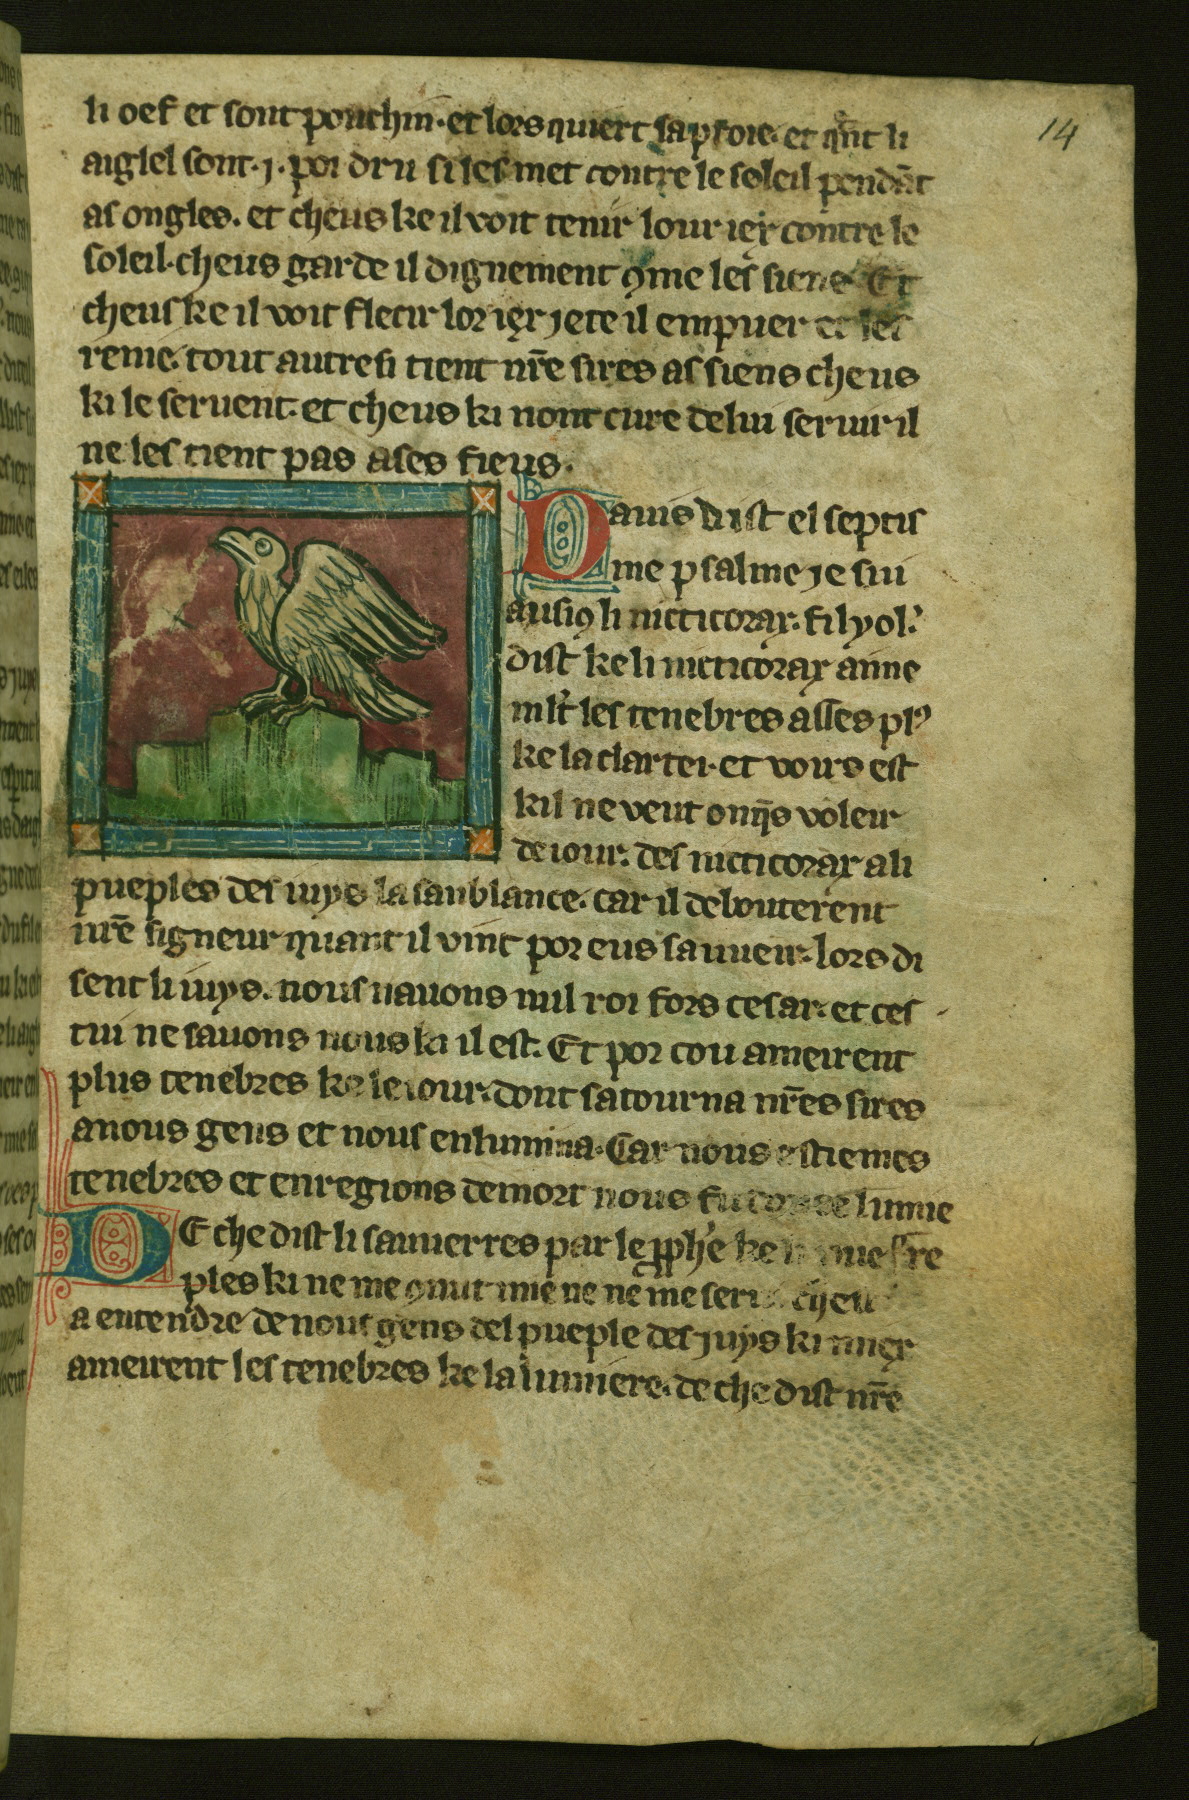 14
li oef et sont pouchin. et lors quiert sa proie. et q̃nt li
aiglel sont .j. poi dru si les met contre le soleil pendãt
as ongles. et cheus ke il voit tenir lour iex contre le
soleil. cheus garde il dignement 9me les siens Et
cheus ke il voit flecir lor iex jete il empuer et les
renie. tout autresi tient nr̃e sires as siens cheus
ki le seruent. et cheus ki nont cure de lui seruir il
ne les tient pas a ses fieus.
Dauis dist el septis
me psalme je sui
ausi 9 li nicticorax. filyol'.
dist ke li nicticorax aime
mlt' les tenebres asses pl9
ke la clartei. et voirs est
kil ne veut onq̃s voleir
de iour. des nicticorax a li
pueples des iuys la sanblance. car il debouterent
nr̃e signeur quant il vint por eus sauueir. lors di
sent li iuys. nous nauons nul roi fors cesar. et ces
tui ne sauons nous ki il est. Et por cou ameirent
plus tenebres ke le iour. dont satourna nr̃es sires
a nous gens et nous enlumina. Car nous estiemes
tenebres et en regions de mort nous fu lumie
DE che dist li sauuerres par le pph'e ke re
ples ki ne me 9nut mie ne ne me
a entendre de nous gens del pueple des juys ki miex
ameirent les tenebres ke la lumiere. de che dist nr̃e